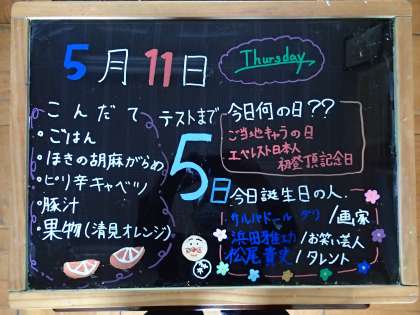 5月11日
Thursday
こんだて
・ごはん
・ほきの胡麻がらめ
・ピリ辛キャベツ
・豚汁
・果物(清見オレンジ)
テストまで
5日
今日何の日??
ご当地キャラの日
エベレスト日本人
初登頂記念日
今日誕生日の人
サルバドール ダリ/画家
浜田雅功/お笑い芸人
松尾貴史/タレント